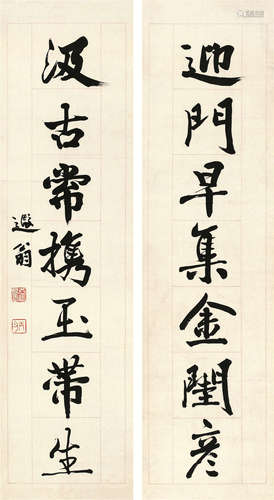 迎門早集金閨彦
汲古常携玉帶生
遐翁